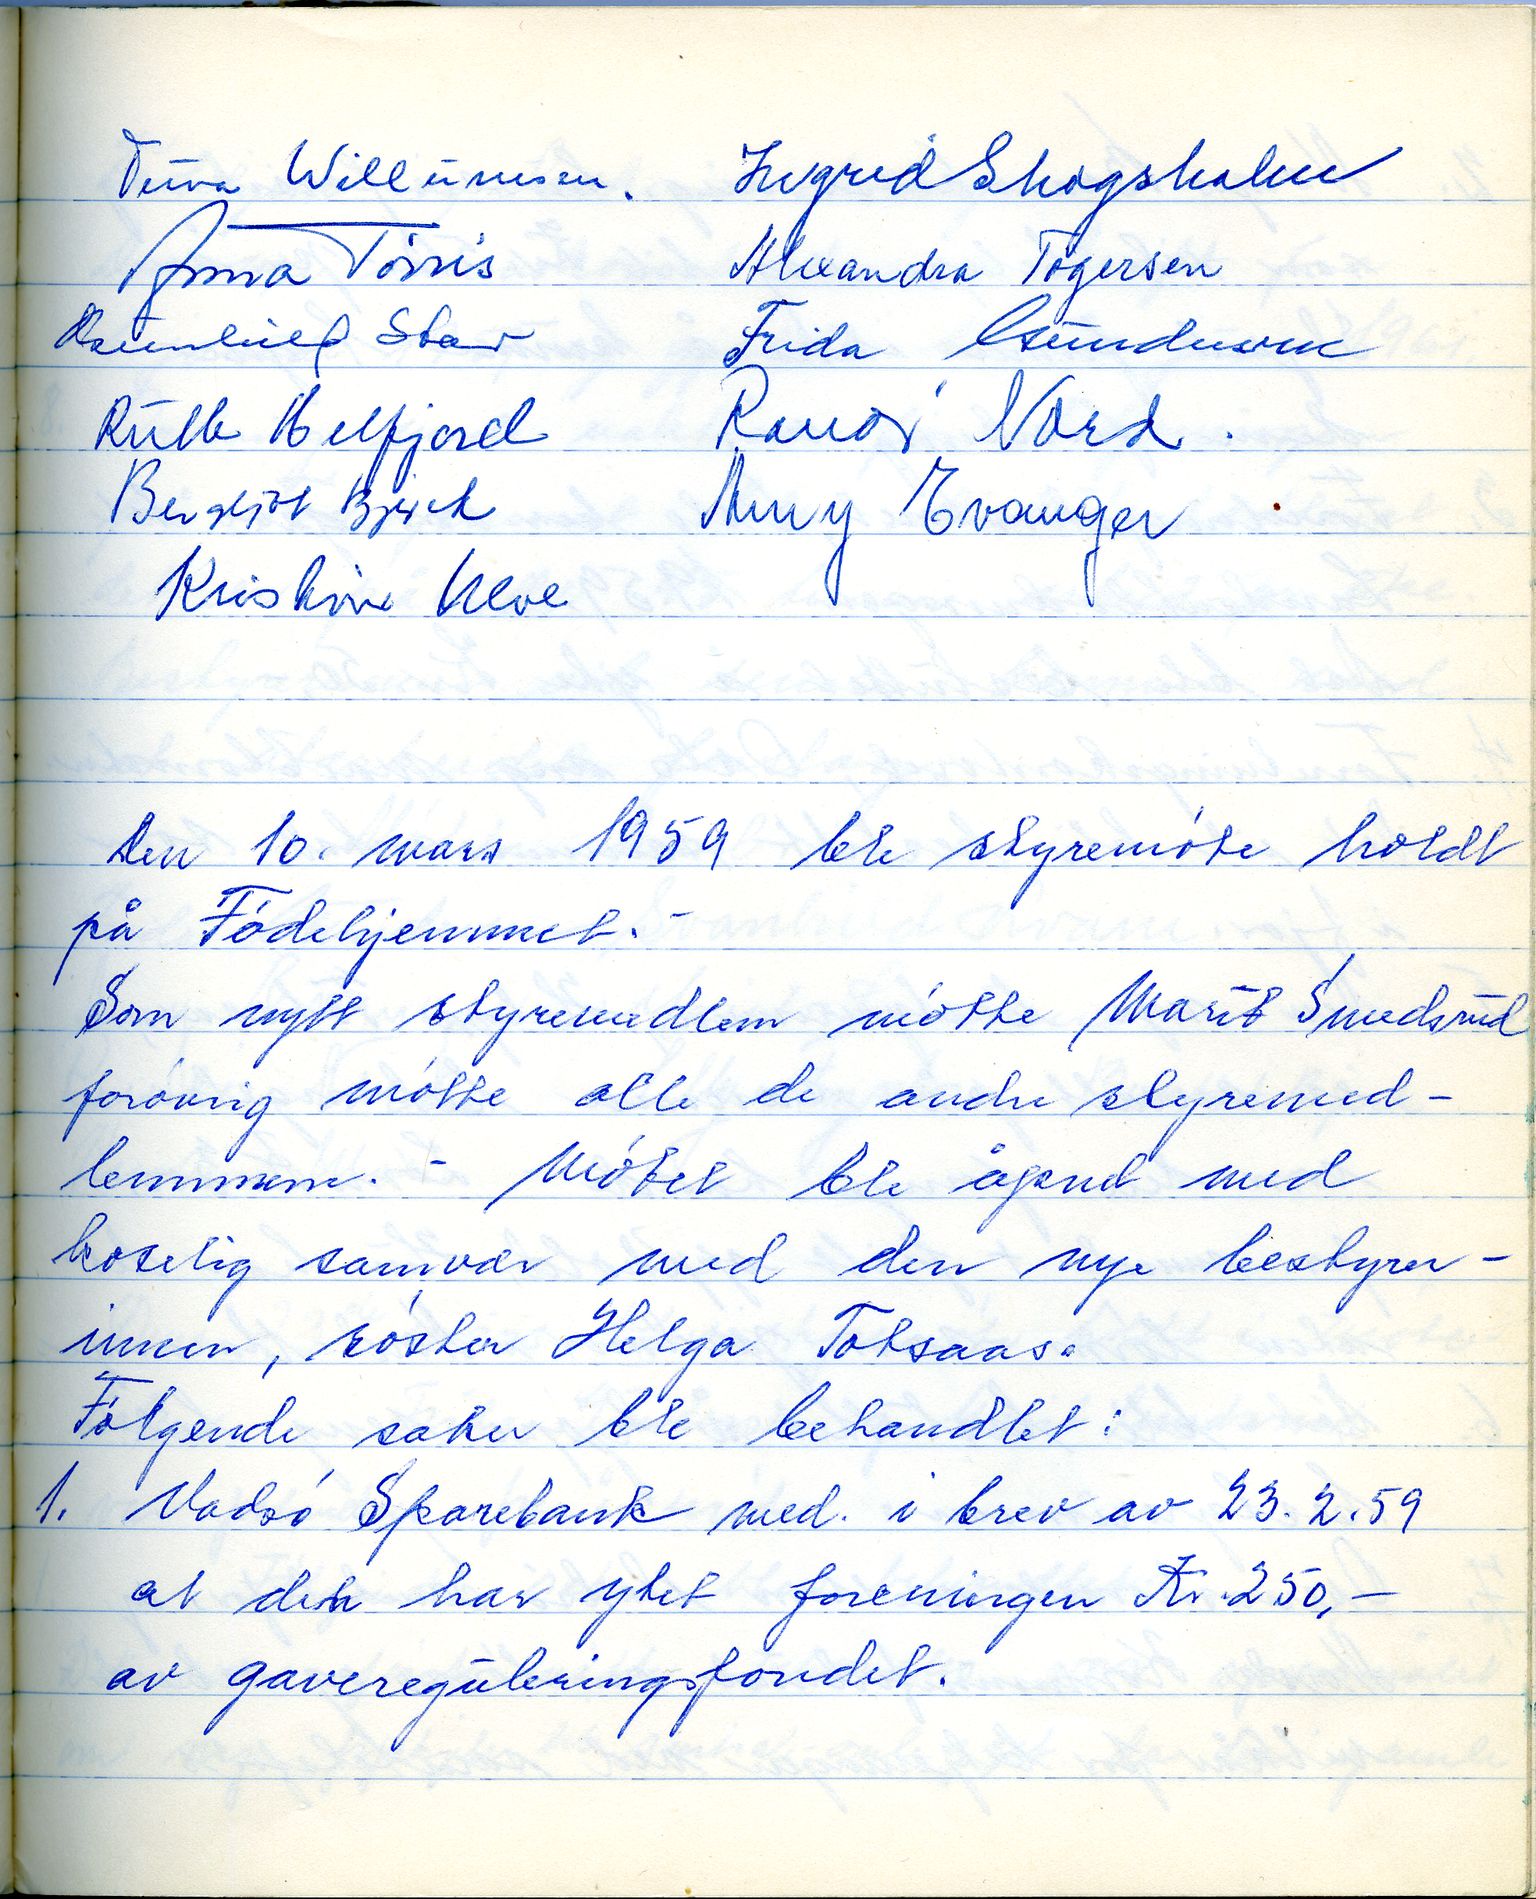 Willumsen. Ingrid Skogsholm
Anna Törris Alexandra Togersen
Frida Gundersen
Ruth Melfjord Randi Nord.
Bergljot Bjørck Amy Evanger
Kristine Ulve
Den 10. mars 1959 ble styremóte holdt
på Fódehjemmet. -
Som nytt styremedlem mótte Marit Smedsrud
foróvrig mótte alle de andre styremed-
lemmene. - Mótet ble åpnet med
koselig samvær med den nye bestyrer-
innen, sóster Helga Totsaas.
Fólgende saker ble behandlet:
1. Vadsó Sparebank med. i brev av 23.2.59
at den har ytet foreningen Kr. 250,-
av gavereguleringsfondet.